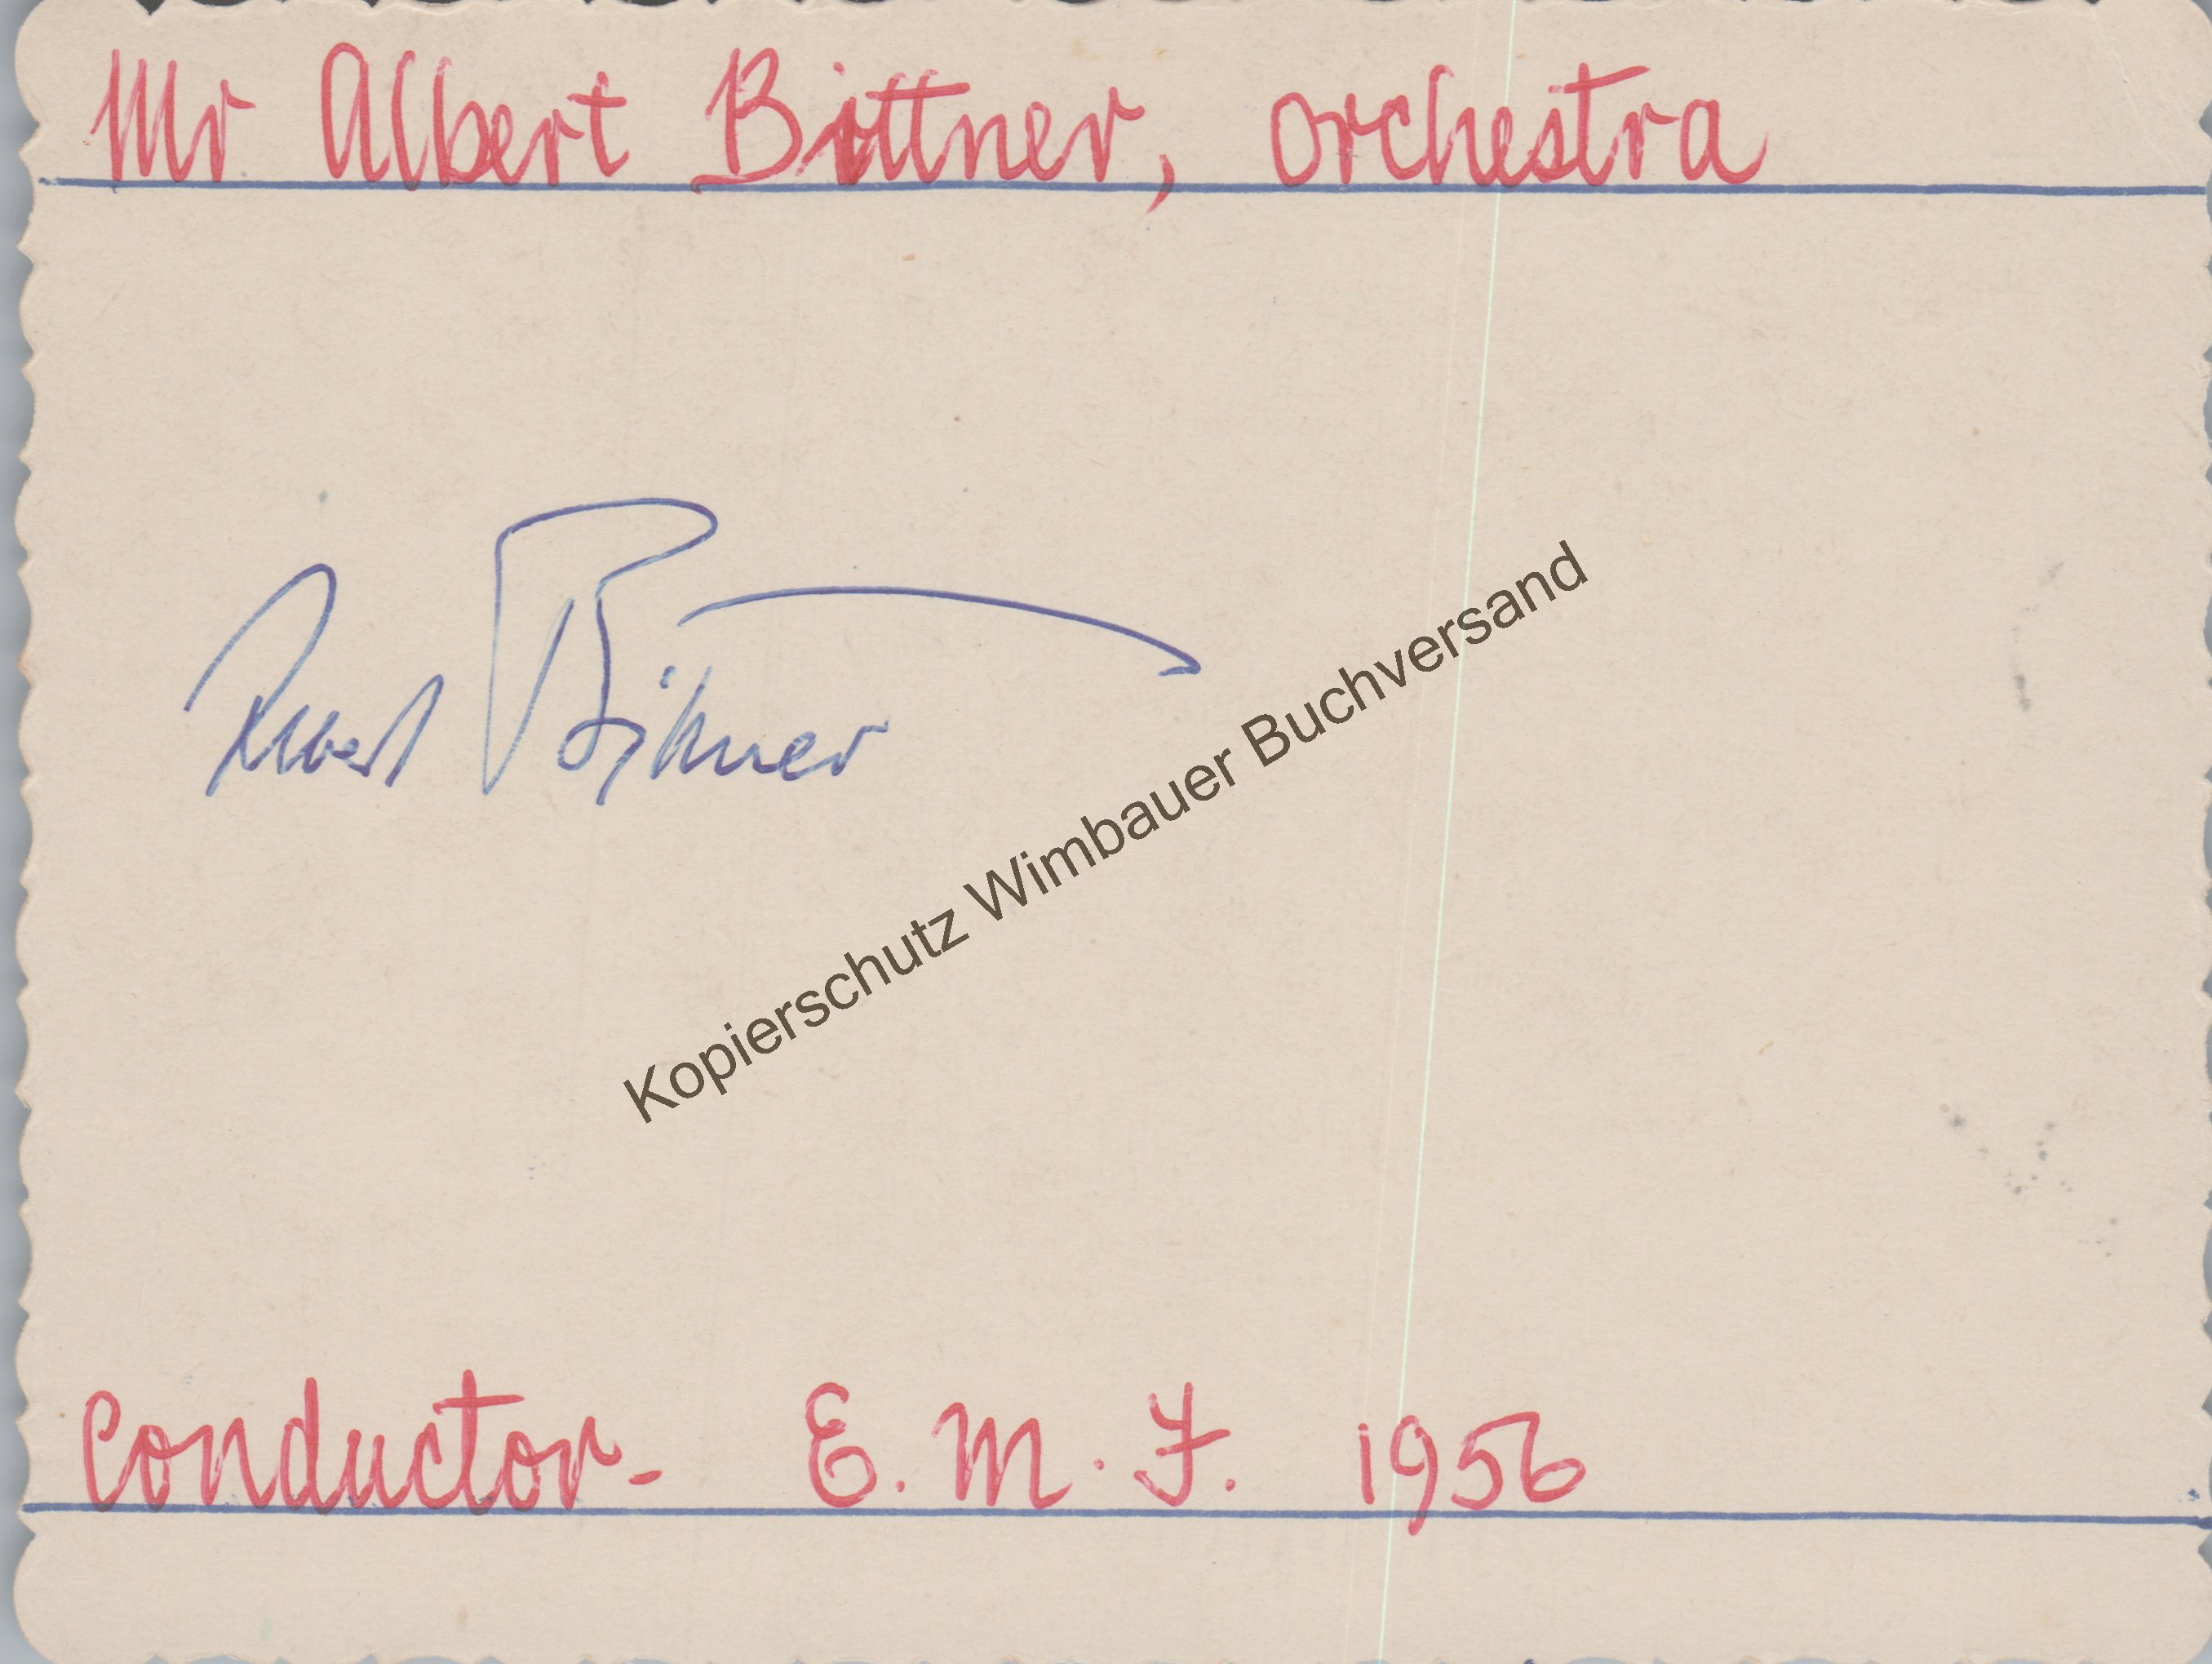 Mr Albert Bittner, orchestra
Albert Bittner
Kopierschutz Wimbauer Buchversand
conductor - E. M. F. 1956